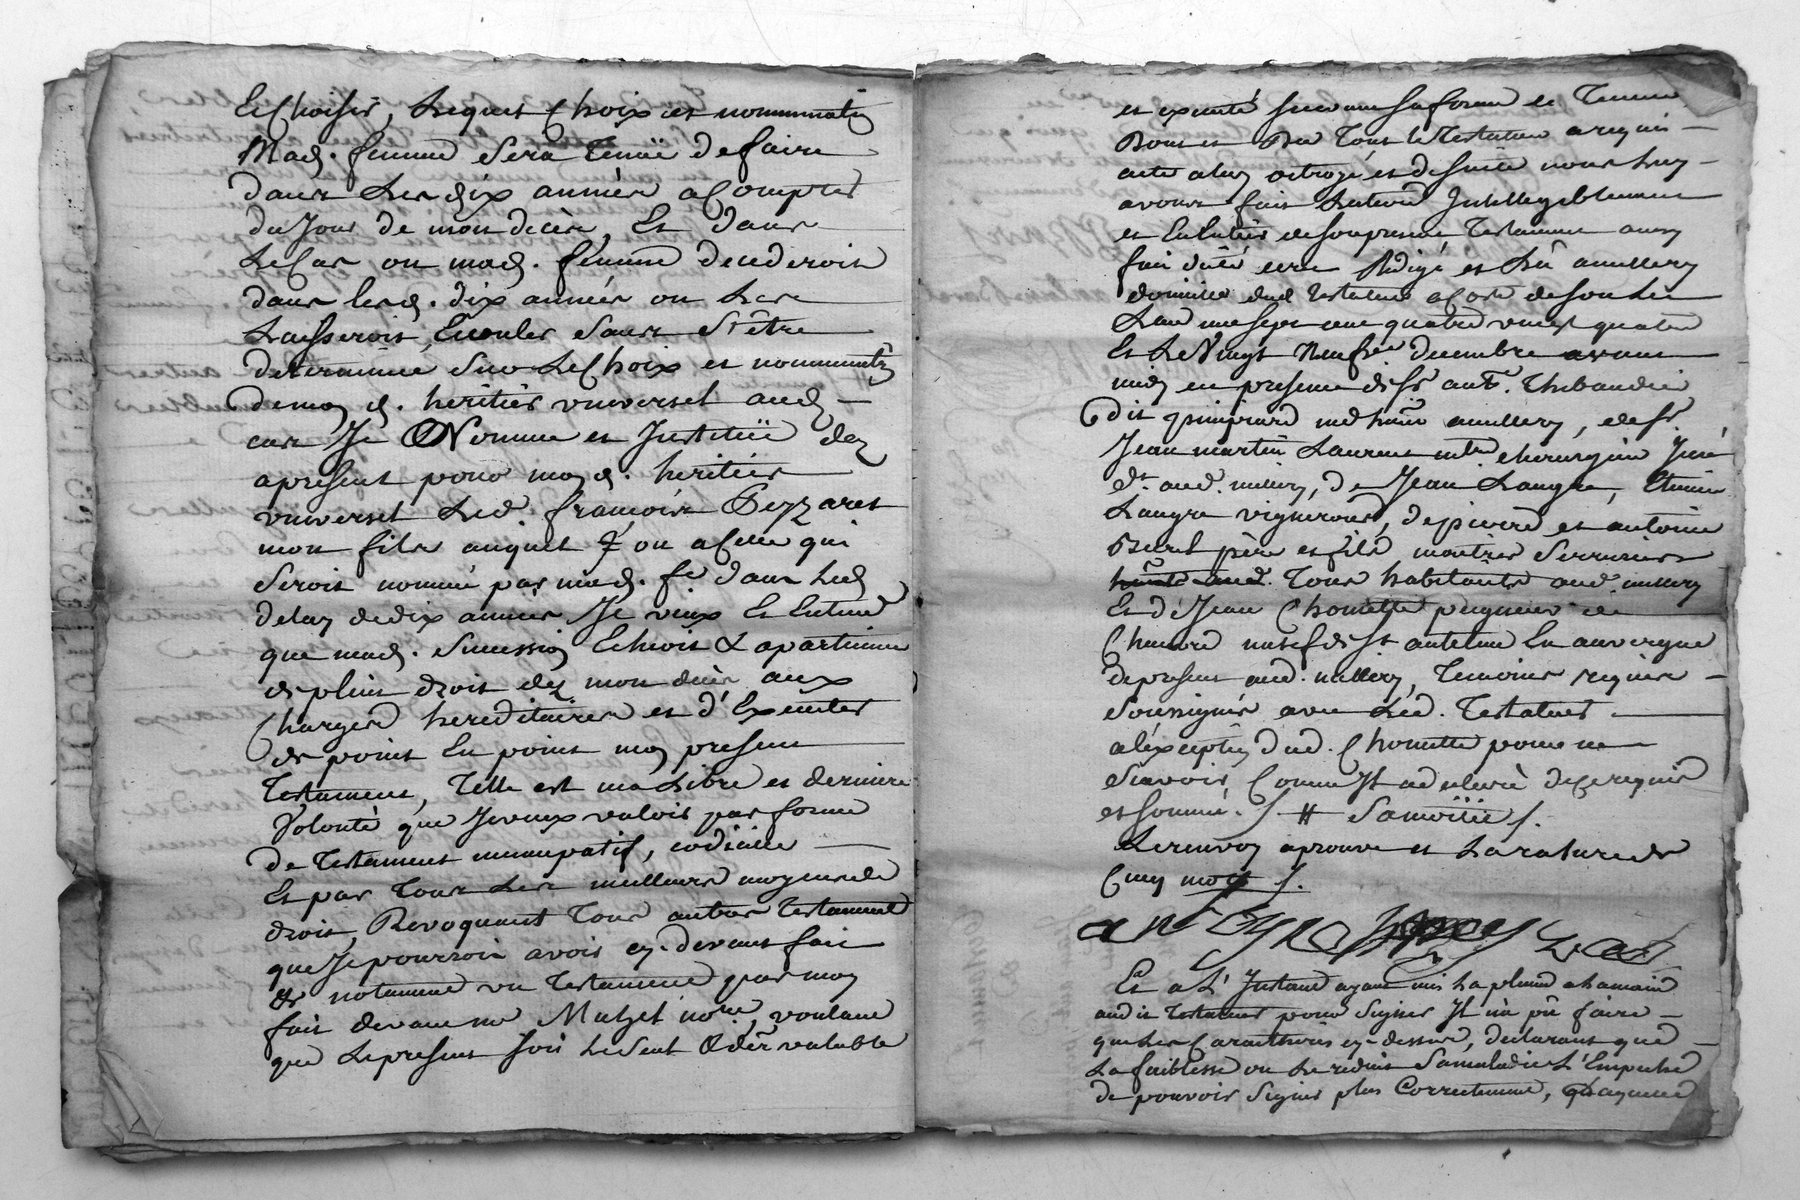 Et Choisir, Lequel Choix et nommination
Mad. femme Sera Tenuë de faire
dans Les dix années a Compter
du Jour de mon décès, Et dans
Le Cas ou mad. femme decederoit
dans lesd. dix années ou Les
Laisseroit Ecouler Sans S'être
determinée Sur Le Choix et nommination
de moy d. heritier universel aud.
cas Je Nomme et Jnstituë dez
apresent pour moyd. heritier
universel Led. françois Pezzaret
mon fils auquel ou a Celle qui
Seroit nommé par mad. fe dans Led.
delay de dix années Je veux Et Entend
que mad. Succession Echeoit & apartienne
de plein droit dez mon décès aux
Charges hereditaires et d'Executer
de point En point moy present
Testament, Telle est ma Libre et derniere
Volonté que Je veux valoir par forme
de Testament nuncupatif, codicille
Et par Tous Les meilleurs moyens de
droit, Revoquant Tous autres Testaments
que Je pourrois avoir cy-devant fait
& notamment un Testament par moy
fait devant me Matzel nore, voulant
que Le present Soit Le Seul valable
et executé Suivant Sa forme et Teneur
Dont et Du Tout le Testateur a requis
acte a luy octroyé et de Suitte nous Luy
avons fait Lecture Jntelligiblement
et En Entier de Son present Testament ainsy
fait dicté ecrit Redigé et Lû a millery
domicille dud. testateur a Coté de Son Lit
L'an mil sept cent quatre vingt quatre
Et Le Vingt Neuf decembre avant
midy en presence de Sr ant. Thibaudier
dit millery, de Sr.
Jean martin Laurent mtre chirurgien Juré
dt. aud. millery, de Jean Langre, Etienne
Langre vignerons, de pierre et antoine
père et fils maitres Serruriers
Tous habitants aud. millery
Et de Jean Chomette peigneur de
Chanvre natif de St antelme En auvergne
de present aud. millery, Temoins requis
Soussignés avec Led. Testateur
a l'exception dud. Chomette pour ne
Sçavoir Comme Jl a declaré de ce requis
et Sommé. /
Le renvoy aprouvé et La rature de
Cinq mots /.
Et a L'Jnstant ayant mis La plume a la main
audit Testateur pour Signer Jl n'a pû faire
que Les Caractheres cy-dessus, declarant que
La faiblesse ou Le reduit Sa maladie L'Empeche
de pouvoir Signer plus Correctement,